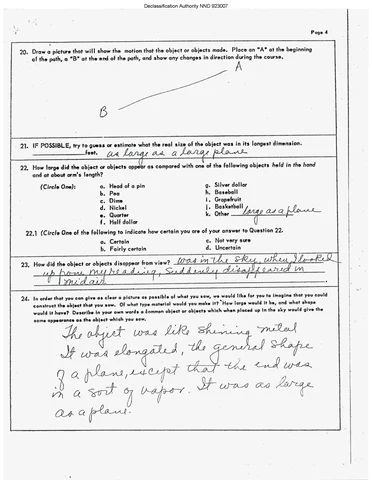 Declassification Authority NND 923007
Page 4
20. Draw a picture that will show the motion that the object or objects made. Place an "A" at the beginning
of the path, a "B" at the end of the path, and show any changes in direction during the course.
A
B
21. IF POSSIBLE, try to guess or estimate what the real size of the object was in its longest dimension.
feet. as large as a large plane
22. How large did the object or objects appear as compared with one of the following objects held in the hand
and at about arm's length?
(Circle One): a. Head of a pin g. Silver dollar
b. Pea h. Baseball
c. Dime i. Grapefruit
d. Nickel j. Basketball
e. Quarter k. Other large as a plane
f. Half dollar
22.1 (Circle One of the following to indicate how certain you are of your answer to Question 22.
a. Certain c. Not very sure
b. Fairly certain d. Uncertain
23. How did the object or objects disappear from view? was in the sky, when I looked
up from my reading, Suddenly disappeared in
midair
24. In order that you can give as clear a picture as possible of what you saw, we would like for you to imagine that you could
construct the object that you saw. Of what type material would you make it? How large would it be, and what shape
would it have? Describe in your own words a common object or objects which when placed up in the sky would give the
same appearance as the object which you saw.
The object was like shining metal
It was elongated, the general shape
of a plane, except that the end was
in a sort of vapor. It was as large
as a plane.